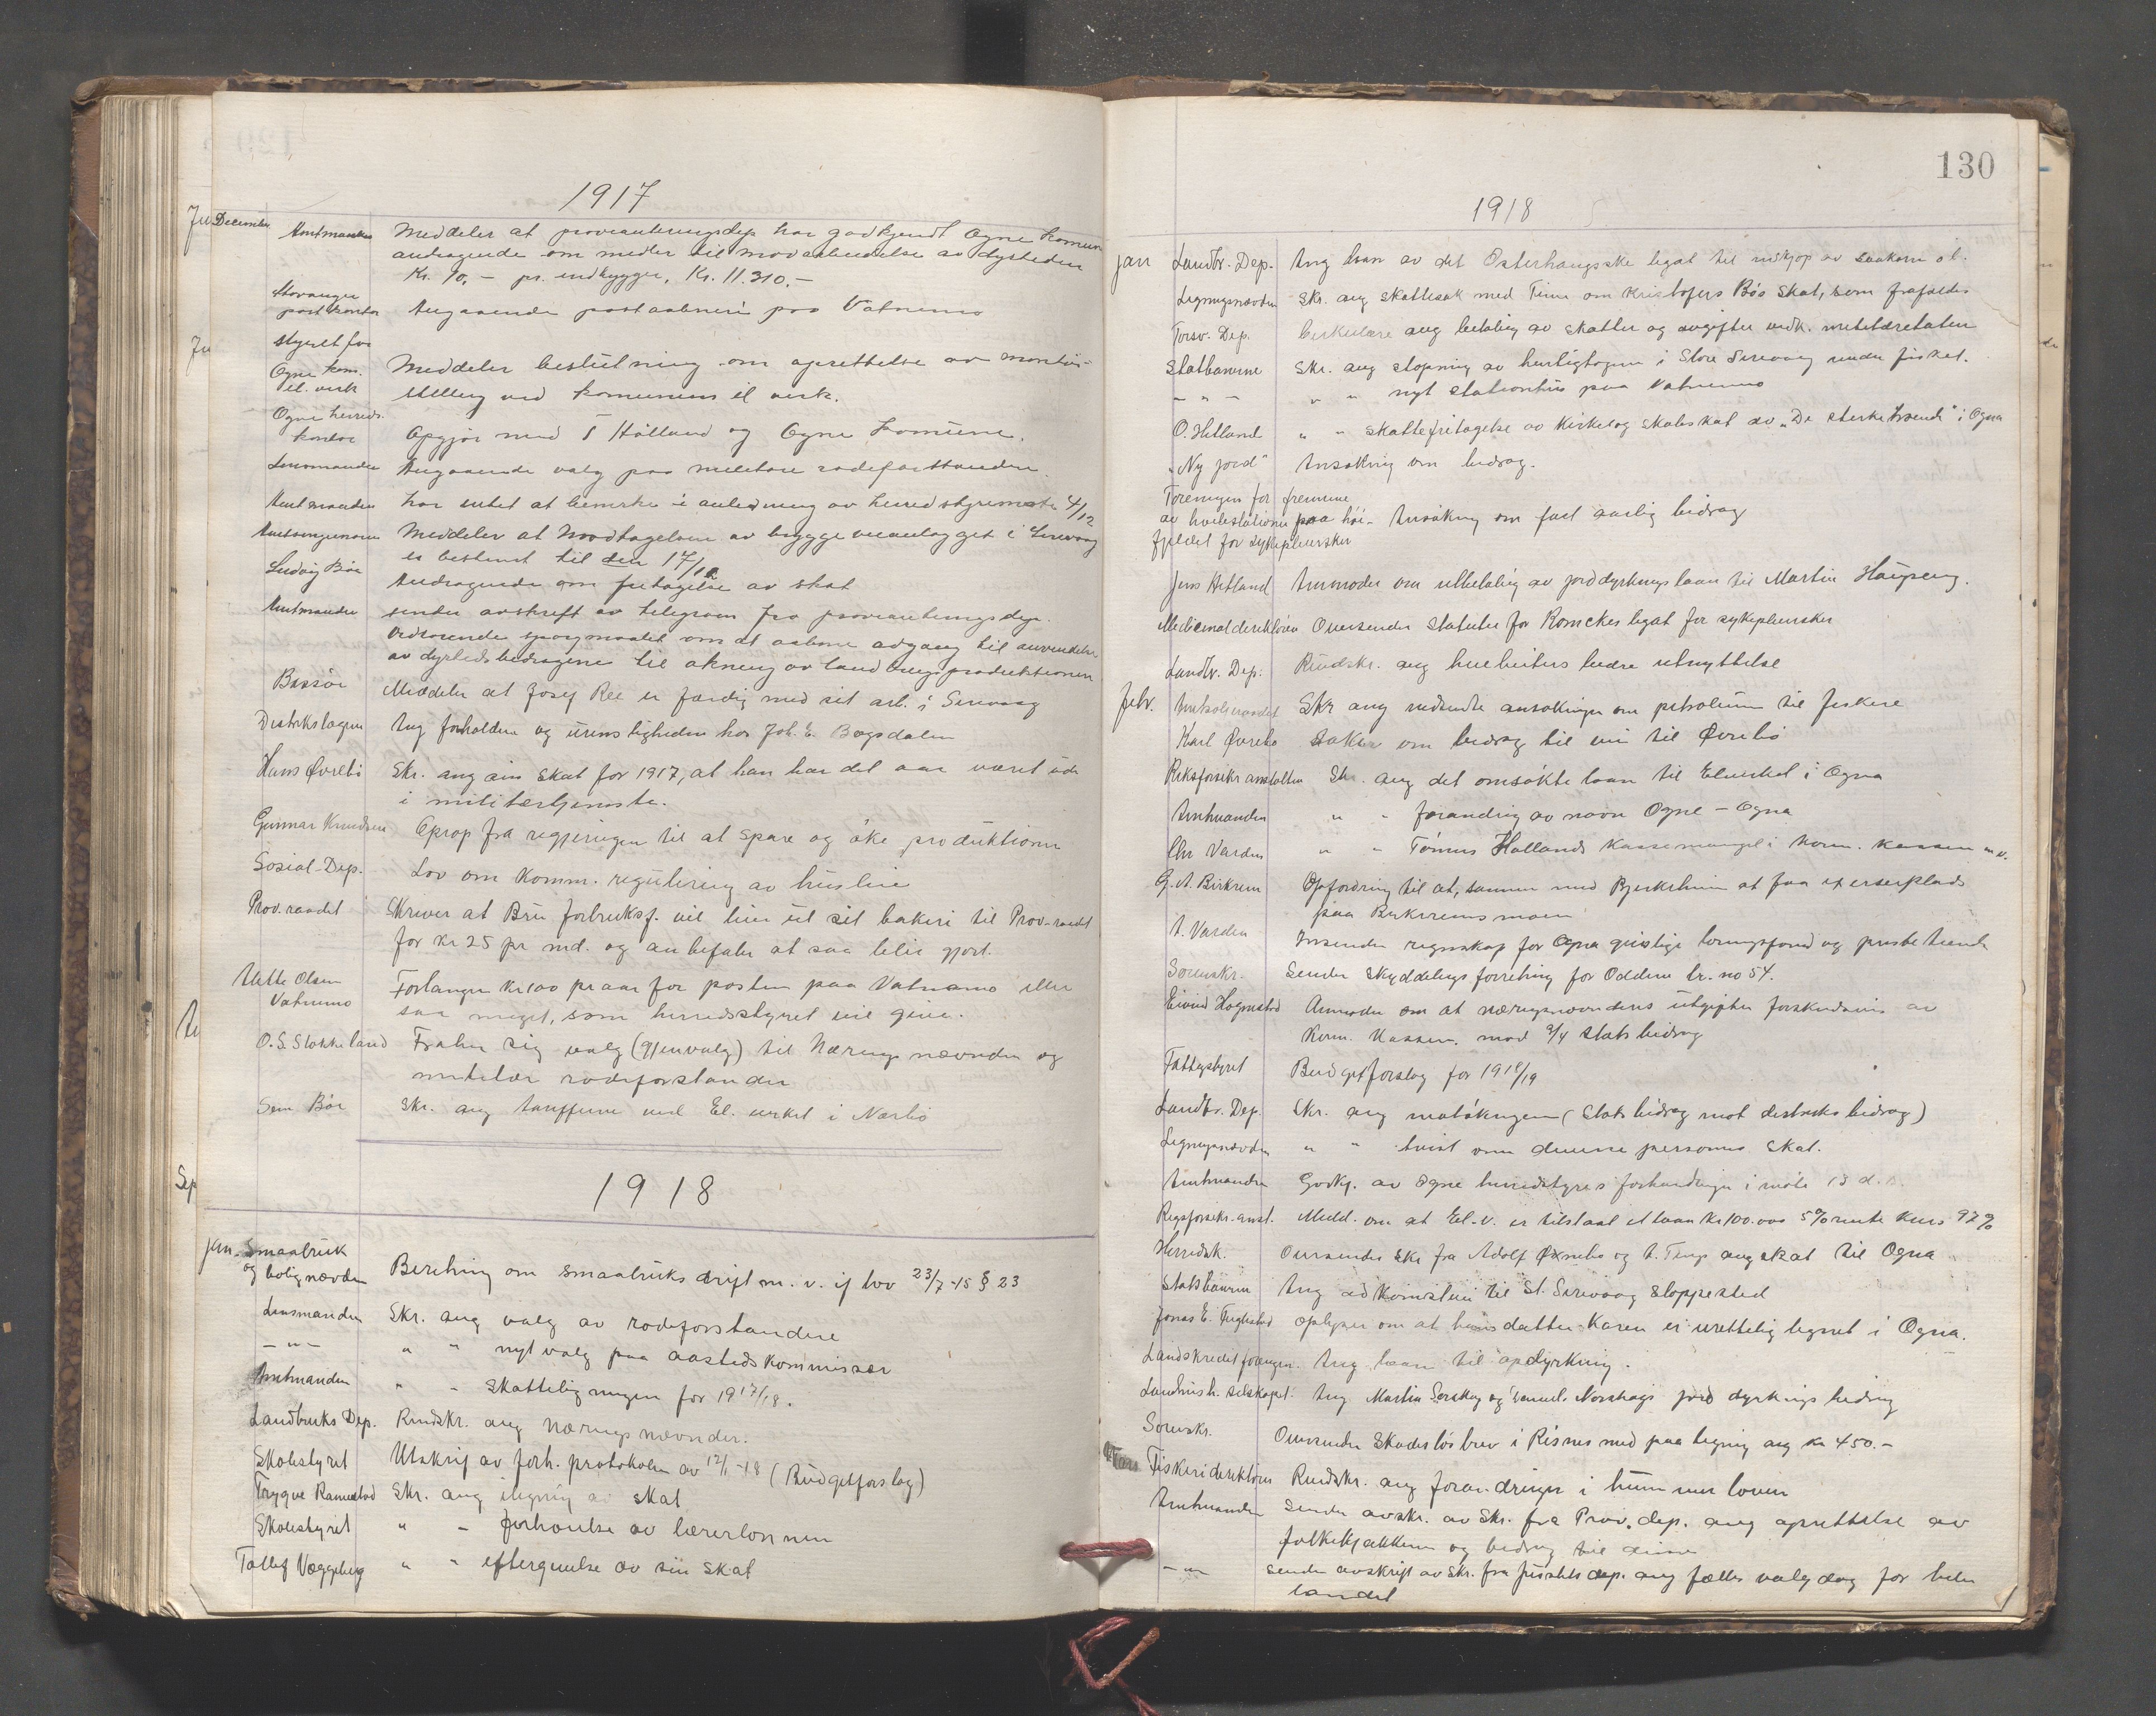 1917
December Amtmanden Meddeler at provianteringsdep har godkjendt Ogne komune
andragende om midler til motarbeidelse av dyrtiden
Kr. 10,- pr. indbygger, Kr. 11.310.-
Stavanger
postkontor Angaaende postaabneri paa Vatnemo
Styret for
Ogne kom. el. verk Meddeler beslutning om oprettelse av montør-
stilling ved komunens el verk.
Ogne herreds-
kontor Opgjør med Holland og Ogne komune.
Lensmanden Angaaende valg paa militære rodeforstander
Amtmanden har intet at bemerke i anledning av herredstyremøte 4/12
Meddeler at mottagelsen av bryggeanlægget i Sirevaag
er bestemt til den 17/12
Ludvig Bøe Andragende om fritagelse av skat
Amtmanden sender avskrift av telegram fra provianteringsdep.
vedrørende spørgsmaalet om at aabne adgang til anvendelse
av dyrtidsbidragene til økning av landbrugsproduktionen
Meddeler at Josef Ree er færdig med sit arb. i Sirevaag
Distriktslægen Ang forholdene og urensligheden hos Joh. E. Bøgsdalen
Hans Øvrebö Skr. ang sin skat for 1917, at han har det aar været ude
i militærtjeneste.
Gunnar Knudsen Oprop fra regjeringen til at spare og øke produktionen
Sosial-Dep. Lov om komm. regulering av husleie
Prov. raadet Skriver at Bru forbruksf. vil leie ut sit bakeri til Prov-raadet
for kr 25 pr md. og anbefaler at saa blir gjort.
Olsen
Vatnemo Forlanger kr 100 pr aar for posten paa Vatnamo eller
saa meget, som herredsstyret vil give.
O. S. Stokkeland Fraber sig valg (gjenvalg) til Næringsnævnden og
militær rodeforstander
Sem Bøe Skr. ang tariffene ved El. verket i Nærbö
1918
Jan. Smaabruk
og bolignævden Beretning om smaabruksdrift m. v. if lov 23/7-15 § 23
Lensmanden Skr. ang valg av rodeforstandere
-"- " " nyt valg paa aastedskommissær
Amtmanden " - skatteligningen for 1917/18.
Landbruks Dep. Rundskr. ang Næringsnævnder.
Skolestyret Utskrift av forh. protokolen av 12/1-18 (Budgetforslag)
Trygve Ramestad Skr. ang skat
Skolestyret " - forhøielse av lærerlønnen
Tollef Væggeberg " " eftergivelse av sin skat
130
1918
Jan Landbr. Dep. Ang laan av det Osterhaugske legat til indkjøp av saakorn ol.
Ligningsnævden Skr. ang skattesak med Time om Kristofers Bös Skat, som frafaldes
Forsv. Dep. Cirkulære ang betaling av skatter og avgifter vedk. militæretaten
Statbanerne Skr. ang stopning av hurtigtogene i Store Sirevaag under fisket.
- " - " " nyt stationhus paa Vatnemo
O. Hetland " " Skattefritagelse av Kirkelag Skabskat av "De sterke i Ogna
"Ny jord" Ansøkning om bidrag.
Foreningen for fremme
av hvilestationer paa høi- Ansøkning om fast aarlig bidrag
fjeldet for sykepleiersker
Jens Hetland Anmoder om utbetaling av jorddyrkningslaan til Martin Haugseng.
Medicinaldirektören Oversender statuter for Romckes legat for sykepleiersker
Landbr. Dep. Rundskr. ang hvebeiters bedre utnyttelse
Febr. Skr ang indsendte ansøkninger om petroleum til fiskere
Karl Øvrebø Søker om bidrag til vei til Øvrebö
Riksforsikr anstalten Skr. ang det omsökte laan til Elverket i Ogna
Amtmanden " - forandring av navn Ogne - Ogna
Chr Varden " - Tönnes Hollands Kassemangel i Kom. kassen m.v.
G. A. Birkrem Opfordring til at, sammen med Bjerkreim at faa exerserplads
paa Birkremsmoen
A. Varden Insender regnskap for Ogna geistlige lønningsfond og prestetiende
Sorenskr. Sender Skyddelings forretning for Oddene br. no 54.
Eivind Hognestad Anmoder om at næringsnævndens utgifter forskuderes av
Kom. Kassen. mod 3/4 Statsbidrag
Fattigstyret Budgetforslag for 1918/19
Landbr. Dep. Skr. ang matökningen (Statsbidrag mot distrikts bidrag)
Ligningsnævden " " tvist om diverse personers Skat.
Amtmanden Godkj. av Ogne herredstyres forhandlinger i möte 13 d.
Rigsforsikr. anst. Meld. om at El.-v. er tilstaat et laan Kr 100.000 5% rente kurs 97%
Herredsk. Oversender Skr fra Adolf Øxnebø og A. Tengs ang skat til Ogna
Statsbanerne Ang adkomstvei til St. Sirevaag Stoppested
Jonas E. Fuglestad Oplyser om at hans datter Karen er urettelig lignet i Ogna.
Landskreditforeningen. Ang laan til opdyrkning.
Landhush. selskapet. Ang Martin og Norshags jorddyrknings bidrag
Sorenskr. Oversender Skadesløsbrev i Risnes med paategning ang kr 450.-
Mars Fiskeridirektören Rundskr. ang forandringer i hummer loven
Amtmanden Sender avskr. av Skr. fra Prov. dep. ang oprettelse av
folkekjøkkener og bidrag til disse
-"- sender avskrift av Skr. fra Justitsdep. ang fælles valgdag for hele
landet